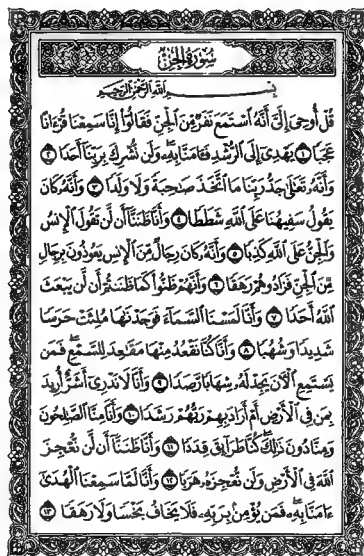 سُورَةُ الْجِنِّ
بِسْمِ اللَّهِ الرَّحْمَٰنِ الرَّحِيمِ
قُلْ أُوحِيَ إِلَيَّ أَنَّهُ ٱسْتَمَعَ نَفَرٌ مِّنَ ٱلْجِنِّ فَقَالُوٓا۟ إِنَّا سَمِعْنَا قُرْءَانًا
عَجَبًا ١ يَهْدِىٓ إِلَى ٱلرُّشْدِ فَـَٔامَنَّا بِهِۦ وَلَن نُّشْرِكَ بِرَبِّنَآ أَحَدًا ٢
وَأَنَّهُۥ تَعَٰلَىٰ جَدُّ رَبِّنَا مَا ٱتَّخَذَ صَٰحِبَةً وَلَا وَلَدًا ٣ وَأَنَّهُۥ كَانَ
يَقُولُ سَفِيهُنَا عَلَى ٱللَّهِ شَطَطًا ٤ وَأَنَّا ظَنَنَّآ أَن لَّن تَقُولَ ٱلْإِنسُ
وَٱلْجِنُّ عَلَى ٱللَّهِ كَذِبًا ٥ وَأَنَّهُۥ كَانَ رِجَالٌ مِّنَ ٱلْإِنسِ يَعُوذُونَ بِرِجَالٍ
مِّنَ ٱلْجِنِّ فَزَادُوهُمْ رَهَقًا ٦ وَأَنَّهُمْ ظَنُّوا۟ كَمَا ظَنَنتُمْ أَن لَّن يَبْعَثَ
ٱللَّهُ أَحَدًا ٧ وَأَنَّا لَمَسْنَا ٱلسَّمَآءَ فَوَجَدْنَٰهَا مُلِئَتْ حَرَسًا
شَدِيدًا وَشُهُبًا ٨ وَأَنَّا كُنَّا نَقْعُدُ مِنْهَا مَقَٰعِدَ لِلسَّمْعِ فَمَن
يَسْتَمِعِ ٱلْءَانَ يَجِدْ لَهُۥ شِهَابًا رَّصَدًا ٩ وَأَنَّا لَا نَدْرِىٓ أَشَرٌّ أُرِيدَ
بِمَن فِى ٱلْأَرْضِ أَمْ أَرَادَ بِهِمْ رَبُّهُمْ رَشَدًا ١٠ وَأَنَّا مِنَّا ٱلصَّٰلِحُونَ
وَمِنَّا دُونَ ذَٰلِكَ كُنَّا طَرَآئِقَ قِدَدًا ١١ وَأَنَّا ظَنَنَّآ أَن لَّن نُّعْجِزَ
ٱللَّهَ فِى ٱلْأَرْضِ وَلَن نُّعْجِزَهُۥ هَرَبًا ١٢ وَأَنَّا لَمَّا سَمِعْنَا ٱلْهُدَىٰٓ
ءَامَنَّا بِهِۦ فَمَن يُؤْمِنۢ بِرَبِّهِۦ فَلَا يَخَافُ بَخْسًا وَلَا رَهَقًا ١٣